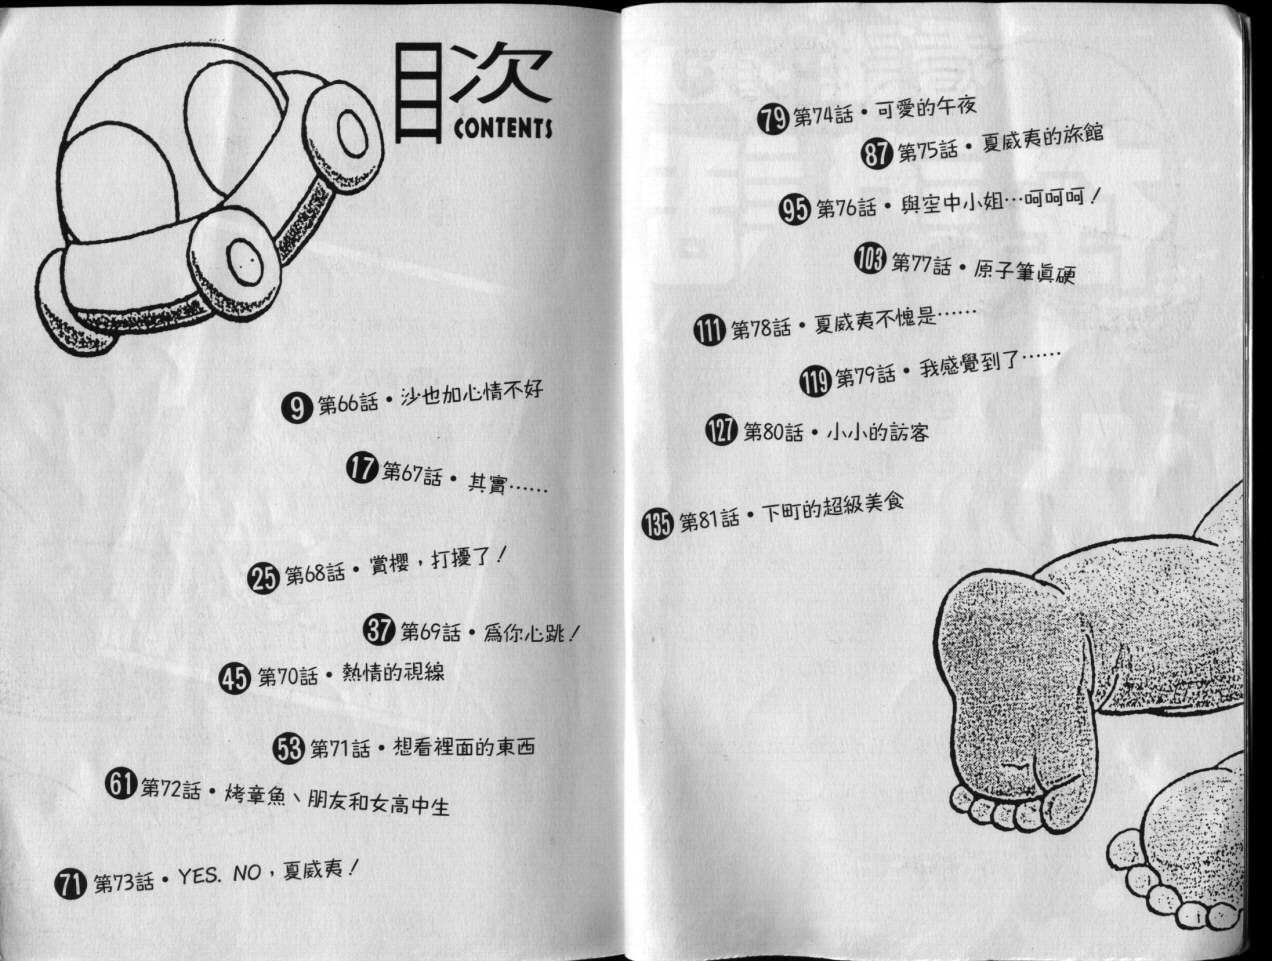 目次
CONTENTS
9 第66話・沙也加心情不好
17 第67話・其實……
25 第68話・賞櫻，打擾了！
37 第69話・為你心跳！
45 第70話・熱情的視線
53 第71話・想看裡面的東西
61 第72話・烤章魚、朋友和女高中生
71 第73話・YES. NO，夏威夷！
79 第74話・可愛的午夜
87 第75話・夏威夷的旅館
95 第76話・與空中小姐…呵呵呵！
103 第77話・原子筆真硬
111 第78話・夏威夷不愧是……
119 第79話・我感覺到了……
127 第80話・小小的訪客
135 第81話・下町的超級美食